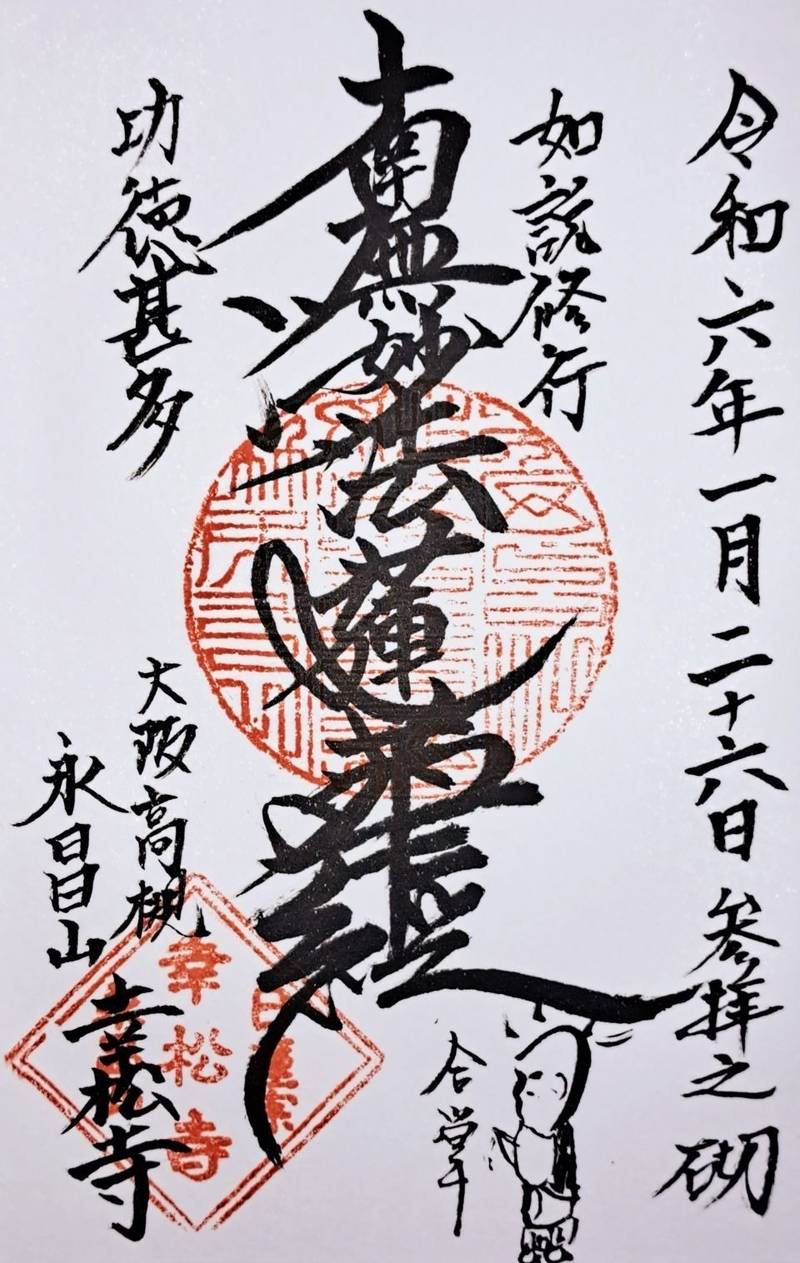 令和六年一月二十六日 参拝之砌
如説修行
南無妙法蓮華経
功徳甚多
合掌
大阪高槻
永昌山
幸松寺
幸松寺